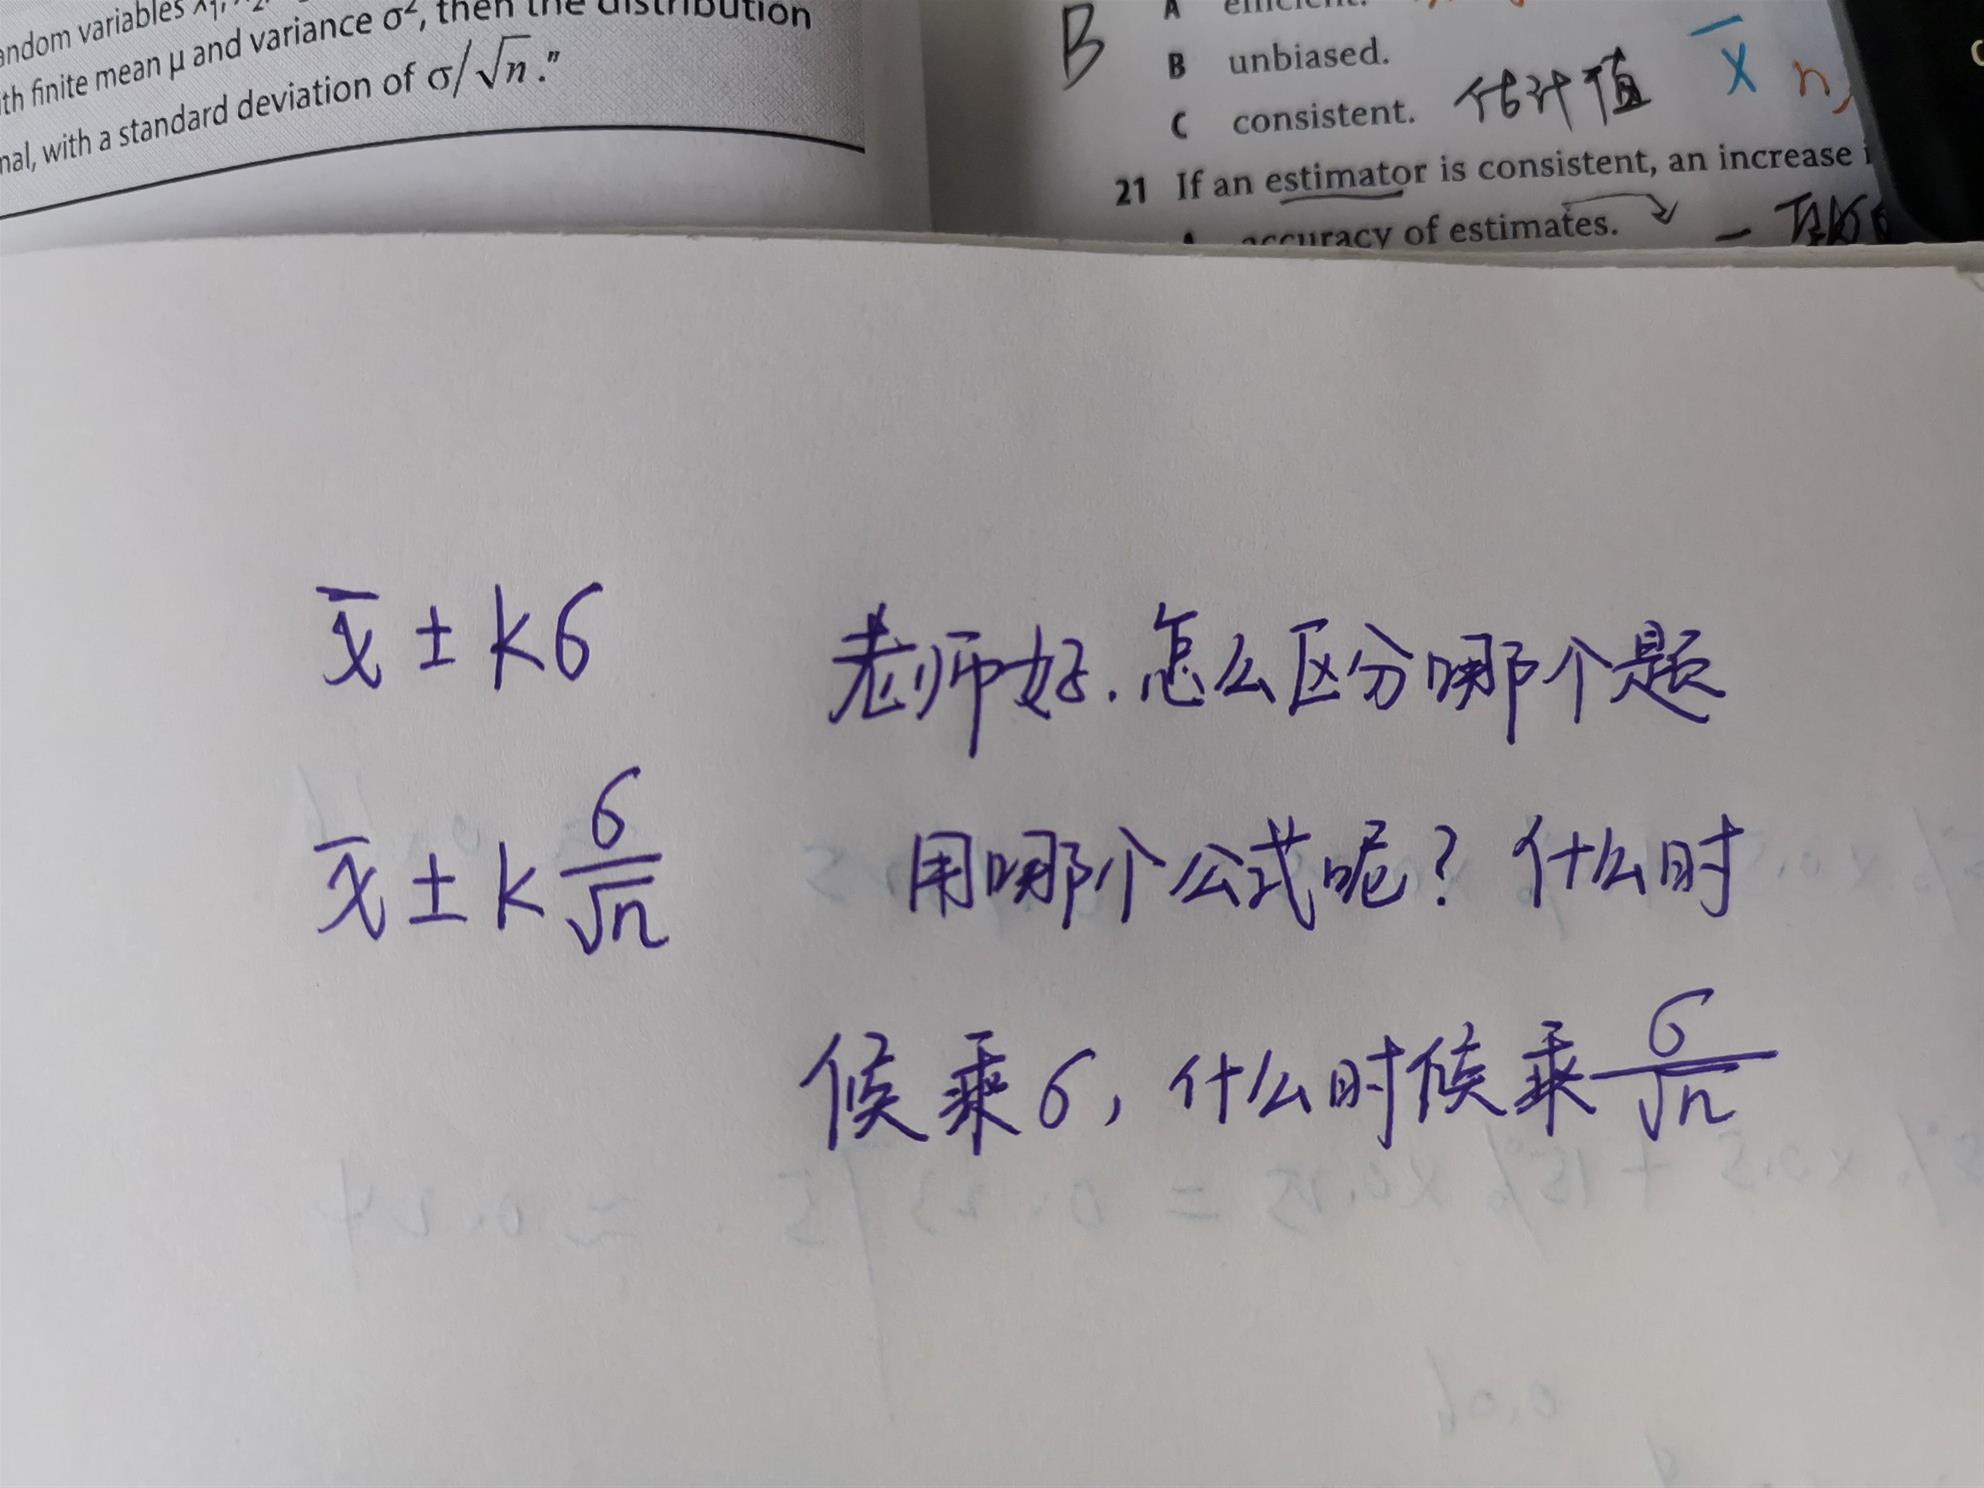 random variables X₁, X₂,
with finite mean μ and variance σ², then the distribution
mal, with a standard deviation of σ/√n."
B
A efficient.
B unbiased.
C consistent. 估计值 x̄ n,
21 If an estimator is consistent, an increase i
A accuracy of estimates.
x̄ ± kσ 老师好.怎么区分哪个题
x̄ ± k σ/√n 用哪个公式呢?什么时
候乘σ,什么时候乘 σ/√n